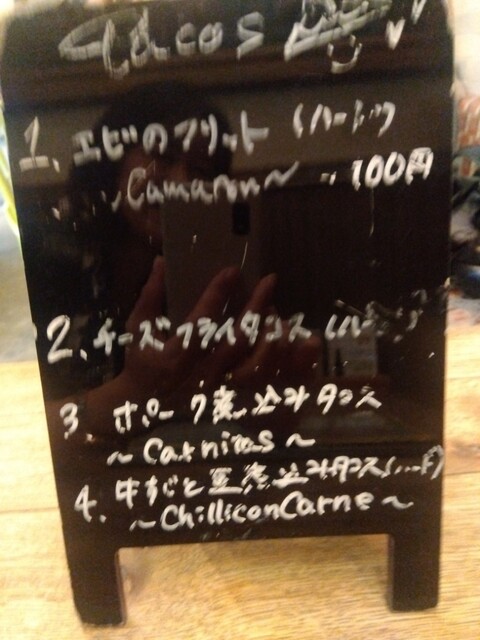 Tacos
1. エビのフリット (ハード)
~Camaron~ 100円
2. チーズフライタコス (ハード)
3. ポーク煮込みタコス
~Carnitas~
4. 牛すじと豆煮込みタコス(ハード)
~ChilliconCarne~